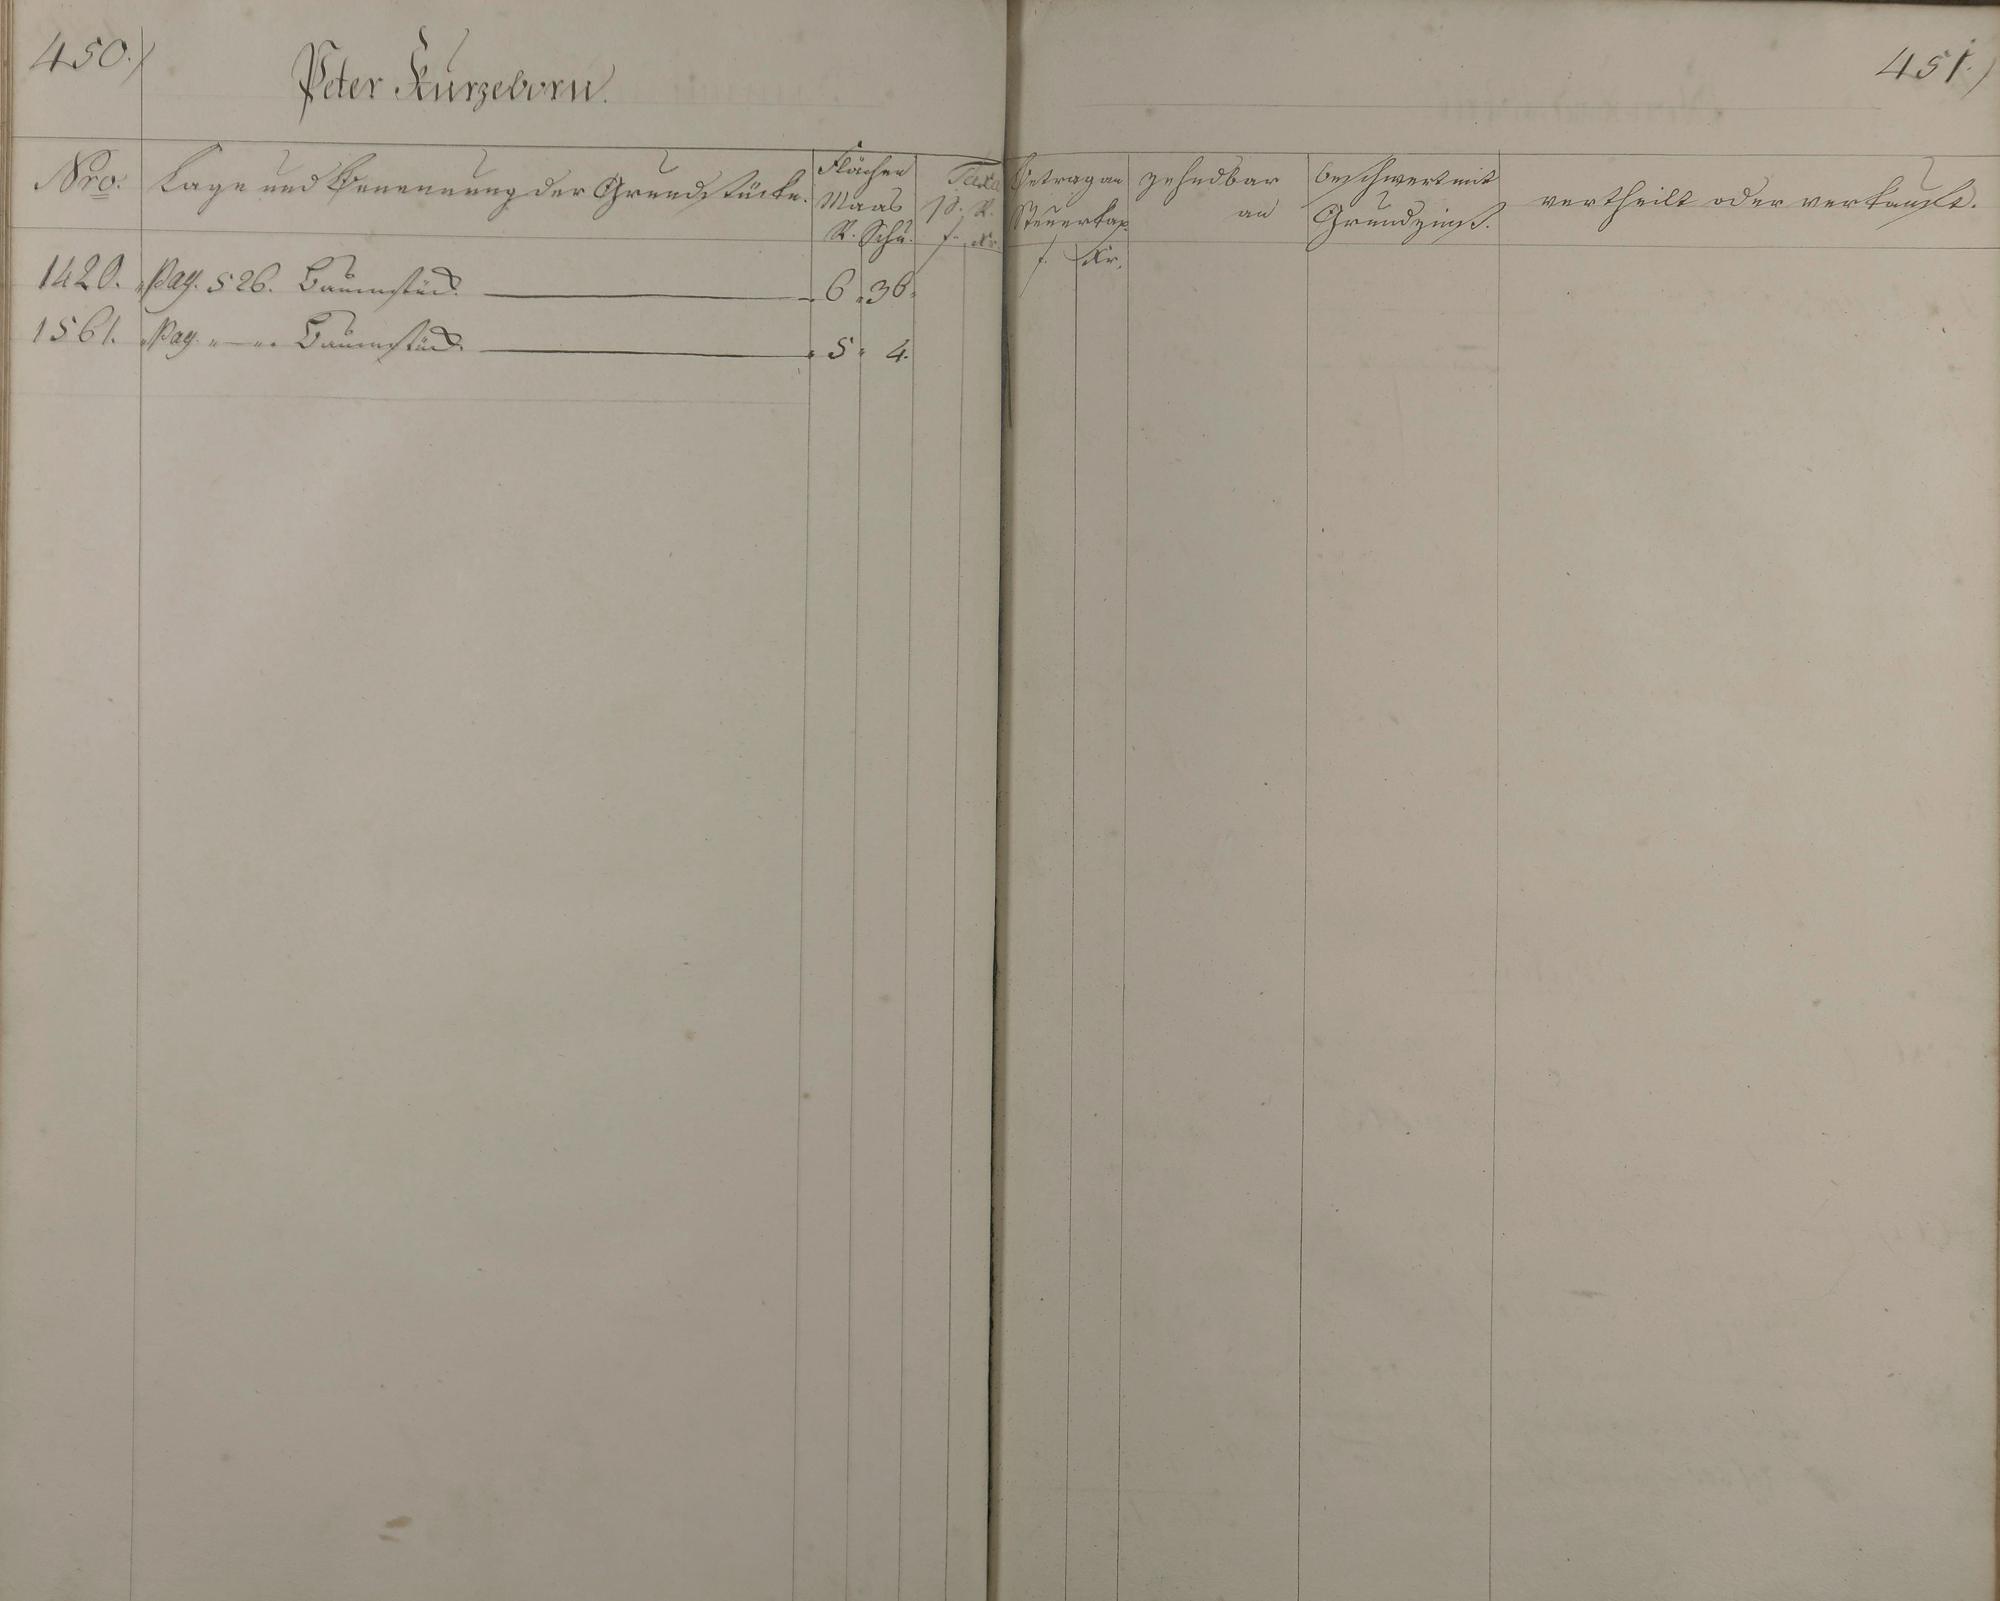 450.)
Peter Kurzeborn.
451.)
Nro. Lage und Benennung der Grundstücke. Flächen Maas R. Schu. Taxa p. R. f. Kr. Betrag an Steuerkap. f. Kr. zehndbar an beschwert mit Grundzinß. vertheilt oder verkauft.
1420. Pag. 526. Baumstück. 6 36.
1561. Pag. " — " Baumstück. 5 4.